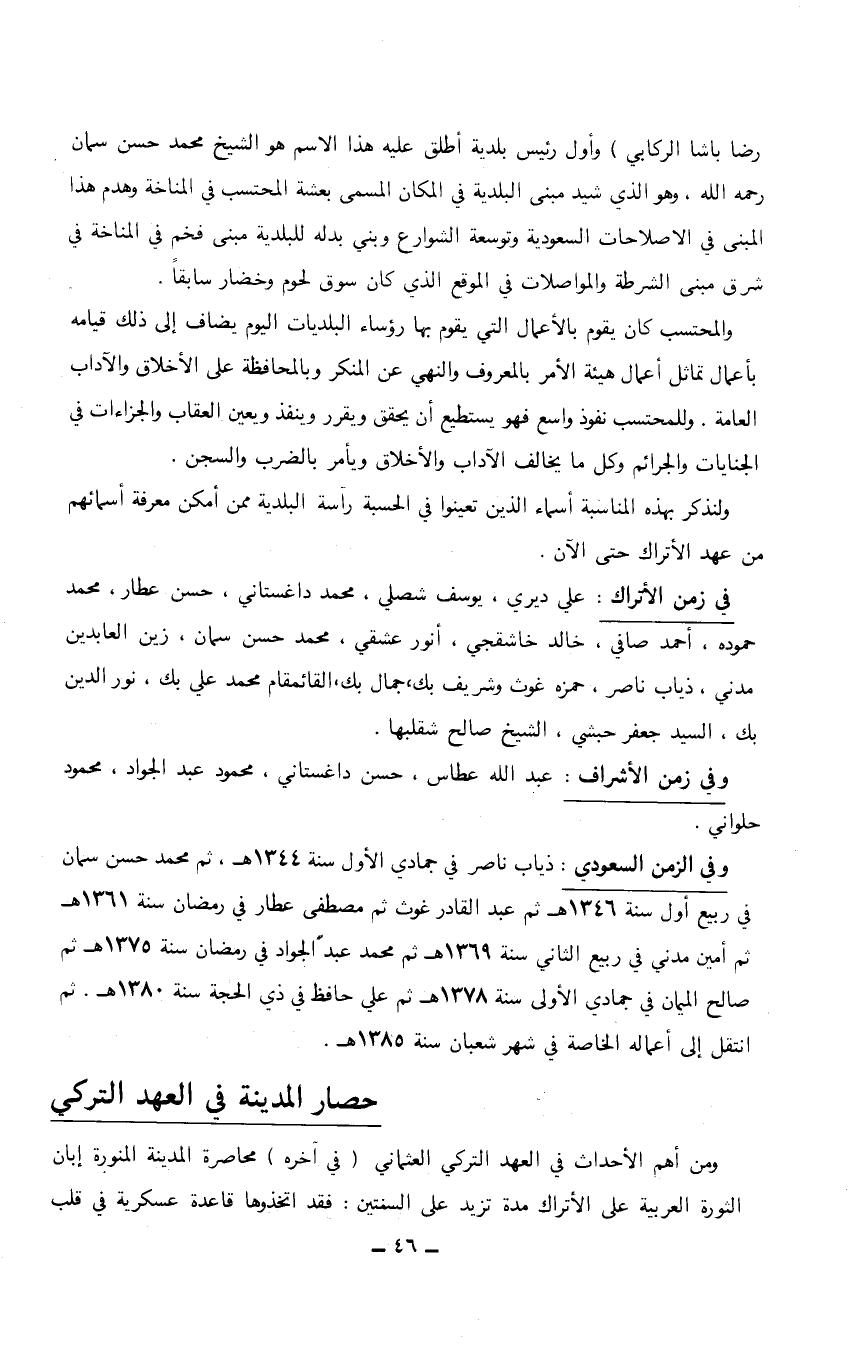 رضا باشا الركابي ) وأول رئيس بلدية أطلق عليه هذا الاسم هو الشيخ محمد حسن سمان
رحمه الله ، وهو الذي شيد مبنى البلدية في المكان المسمى بعشة المحتسب في المناخة وهدم هذا
المبنى في الاصلاحات السعودية وتوسعة الشوارع وبني بدله للبلدية مبنى فخم في المناخة في
شرق مبنى الشرطة والمواصلات في الموقع الذي كان سوق لحوم وخضار سابقاً .
والمحتسب كان يقوم بالأعمال التي يقوم بها رؤساء البلديات اليوم يضاف إلى ذلك قيامه
بأعمال تماثل أعمال هيئة الأمر بالمعروف والنهي عن المنكر وبالمحافظة على الأخلاق والآداب
العامة . وللمحتسب نفوذ واسع فهو يستطيع أن يحقق ويقرر وينفذ ويعين العقاب والجزاءات في
الجنايات والجرائم وكل ما يخالف الآداب والأخلاق ويأمر بالضرب والسجن .
ولنذكر بهذه المناسبة أسماء الذين تعينوا في الحسبة رآسة البلدية ممن أمكن معرفة أسمائهم
من عهد الأتراك حتى الآن .
في زمن الأتراك : علي ديري ، يوسف شصلي ، محمد داغستاني ، حسن عطار ، محمد
حموده ، أحمد صافي ، خالد خاشقجي ، أنور عشقي ، محمد حسن سمان ، زين العابدين
مدني ، ذياب ناصر ، حمزه غوث وشريف بك،جمال بك،القائمقام محمد علي بك ، نور الدين
بك ، السيد جعفر حبشي ، الشيخ صالح شقلبها .
وفي زمن الأشراف : عبد الله عطاس ، حسن داغستاني ، محمود عبد الجواد ، محمود
حلواني .
وفي الزمن السعودي : ذياب ناصر في جمادي الأول سنة ١٣٤٤هـ ، ثم محمد حسن سمان
في ربيع أول سنة ١٣٤٦هـ ثم عبد القادر غوث ثم مصطفى عطار في رمضان سنة ١٣٦١هـ
ثم أمين مدني في ربيع الثاني سنة ١٣٦٩هـ ثم محمد عبد الجواد في رمضان سنة ١٣٧٥هـ ثم
صالح الميمان في جمادي الأولى سنة ١٣٧٨هـ ثم علي حافظ في ذي الحجة سنة ١٣٨٠هـ . ثم
انتقل إلى أعماله الخاصة في شهر شعبان سنة ١٣٨٥هـ .
حصار المدينة في العهد التركي
ومن أهم الأحداث في العهد التركي العثماني ( في آخره ) محاصرة المدينة المنورة إبان
الثورة العربية على الأتراك مدة تزيد على السنتين : فقد اتخذوها قاعدة عسكرية في قلب
ـ ٤٦ ـ